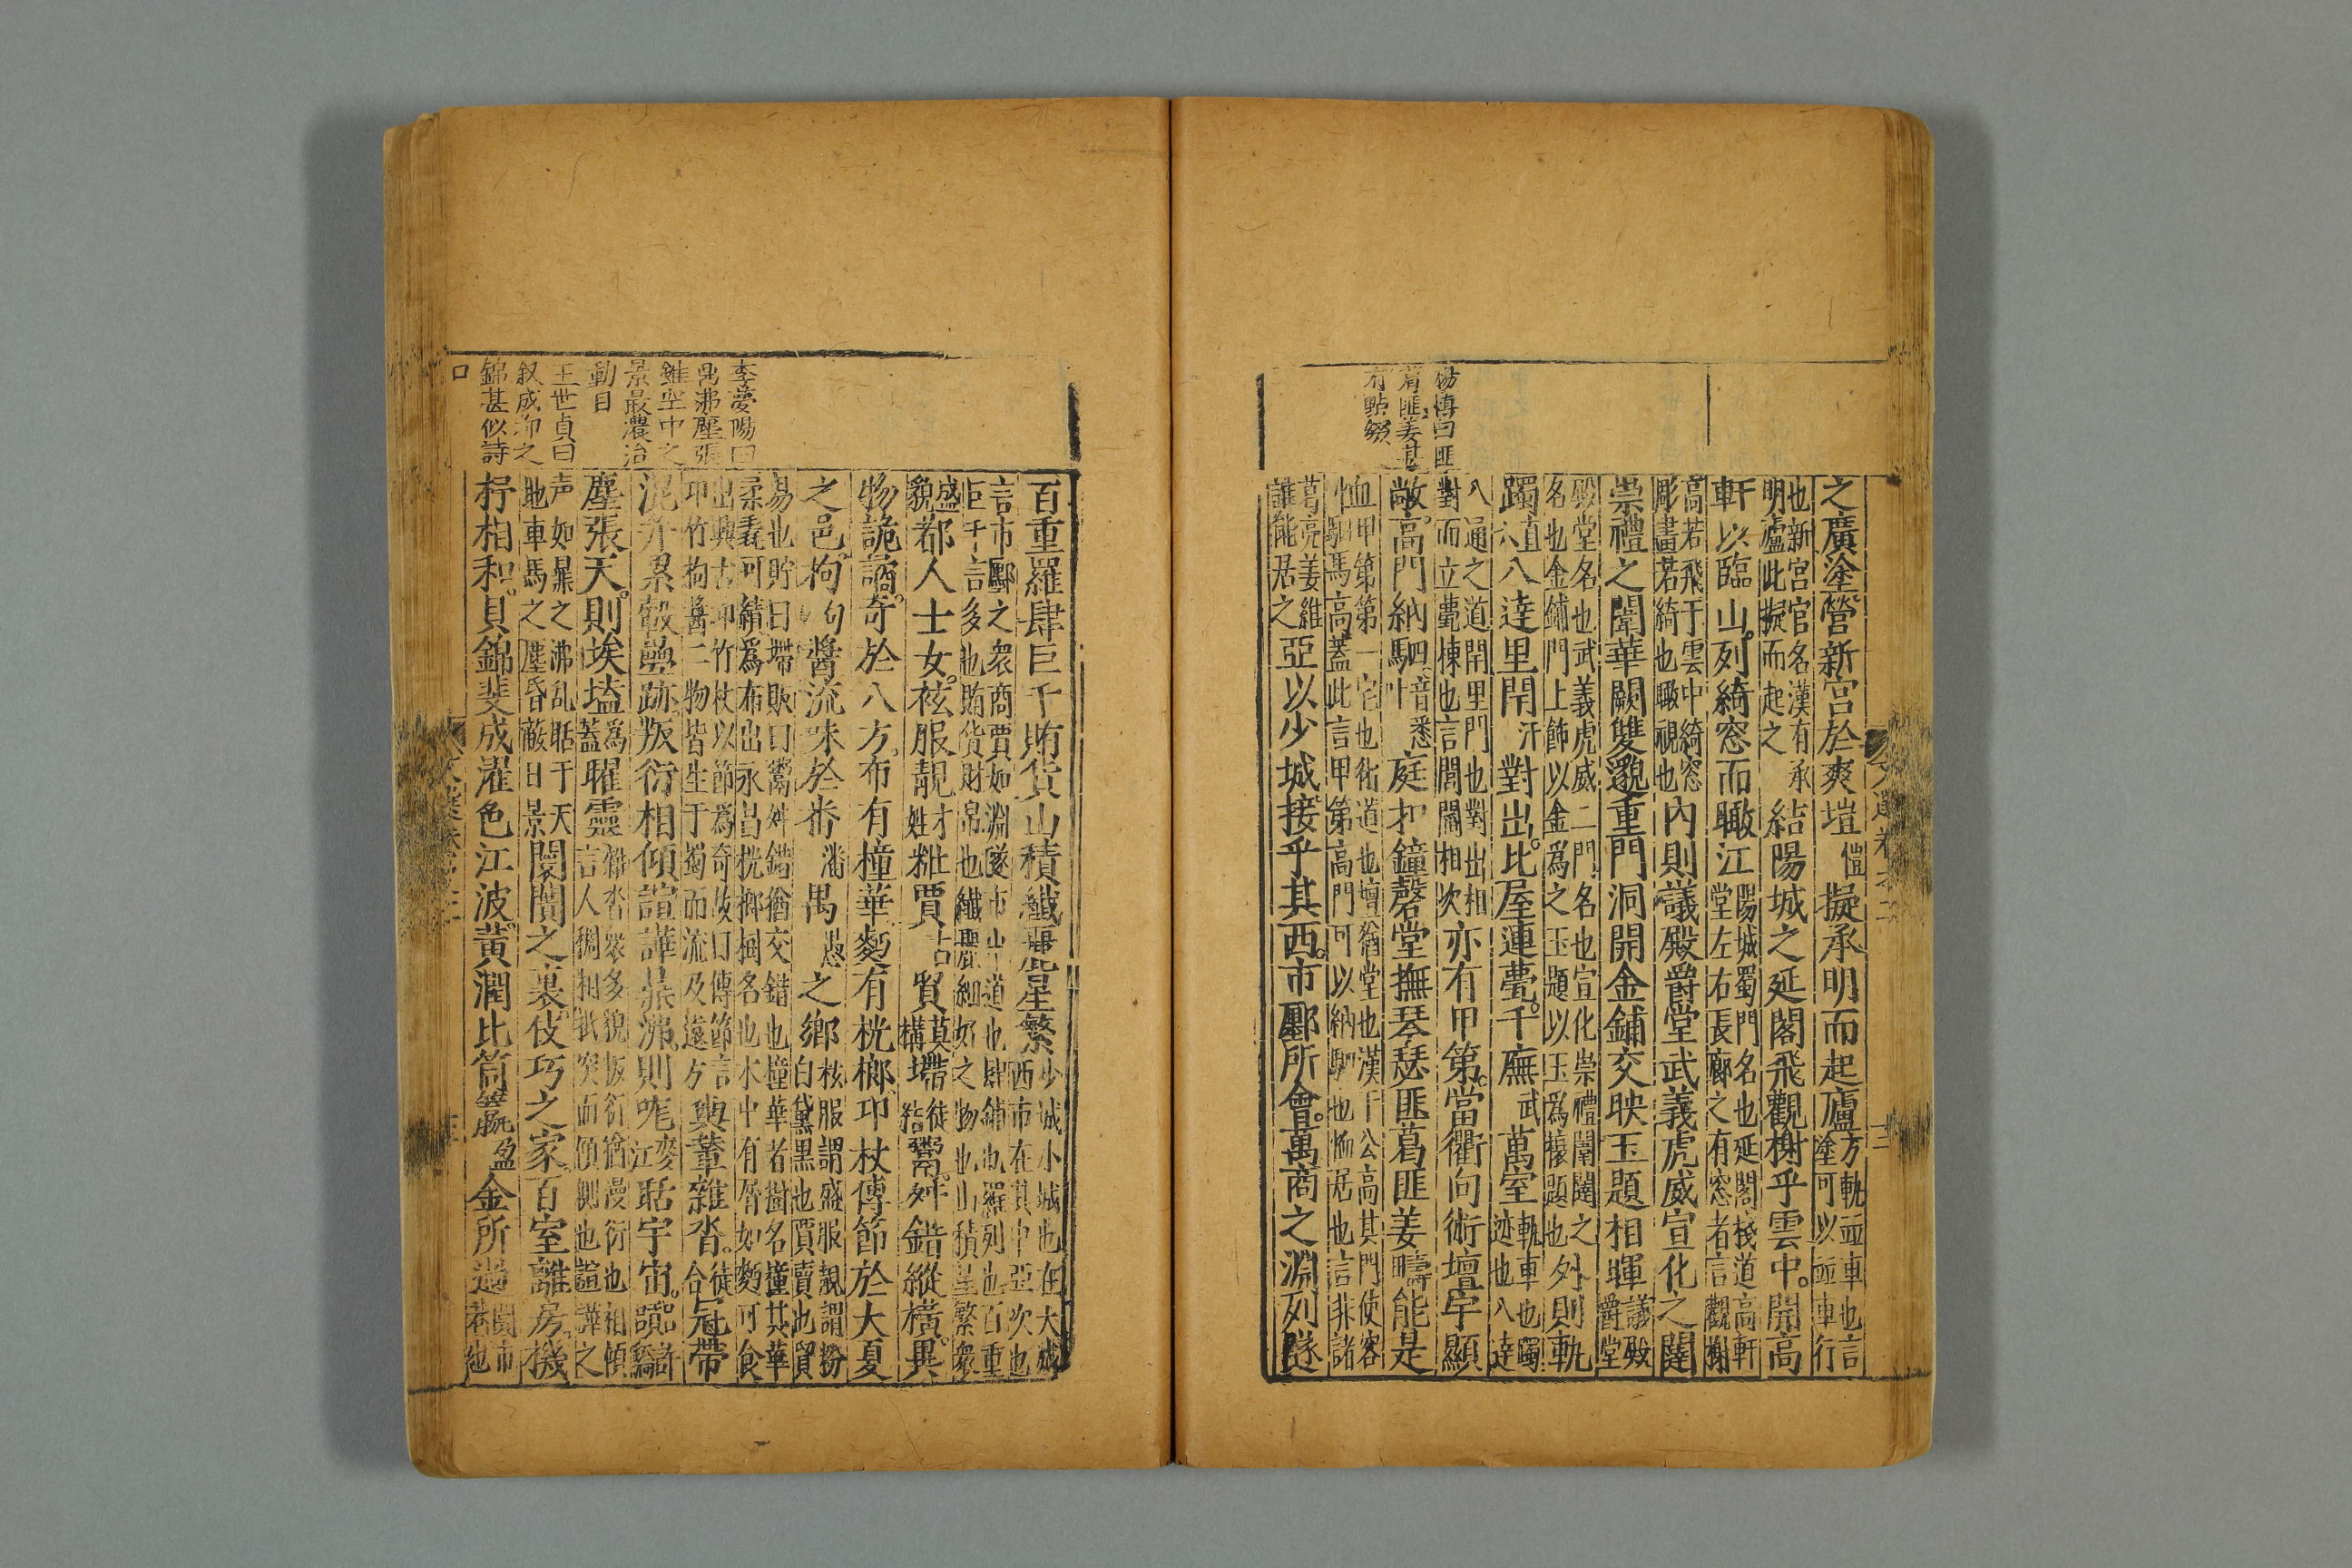 楊慎曰匪
葛匪姜甚
有點綴
之廣塗營新宮於爽塏愷擬承明而起廬方軌並車也言塗可以並車行
也新宮官名漢有承明廬此擬而起之結陽城之延閣飛觀榭乎雲中。開高
軒以臨山。列綺窓而瞰江陽城蜀門名也延閣棧道高軒堂左右長廊之有窓者言觀榭
高若飛于雲中綺窓彫畫若綺也瞰視也內則議殿爵堂武義虎威宣化之闥
崇禮之闈華闕雙邈重門洞開金鋪交映玉題相暉議殿爵堂
殿堂名也武義虎威二門名也宣化崇禮闈闥之名也金鋪門上飾以金爲之玉題以玉爲榱題也外則軌
躅直六八達里閈汗對出。比屋連甍。千廡武萬室軌車也躅迹也八達
八通之道閈里門也對出相對而立甍棟也言閭閻相次亦有甲第。當衢向術壇宇顯
敞。高門納駟。叶音悉庭扣鐘磬堂撫琴瑟匪葛匪姜疇能是
恤甲第第一宅也術道也壇猶堂也漢于公高其門使容駟馬高蓋此言甲第高門可以納駟也恤居也言非諸
葛亮姜維誰能居之亞以少城接乎其西。市鄽所會。萬商之淵列隧
百重羅肆巨千賄貨山積纖麗星繁少城小城也在大城西市在其中亞次也
言市鄽之衆商賈如淵隧市中道也肆鋪也羅列也百重巨千言多也賄貨財帛也纖麗細好之物也山積星繁衆
盛貌都人士女。袨服靚才姓粧賈古貿莫構墆徒結鬻。舛錯縱橫。異
物詭譎。奇於八方。布有橦華麪有桄榔邛杖傳節於大夏
之邑。枸句醬流味於番潘禺愚之鄉袨服謂盛服靚謂粉白黛黑也賈賣也貿
易也貯曰墆販曰鬻舛錯猶交錯也橦華者樹名橦其華柔毳可績爲布出永昌桄榔樹名也木中有屑如麪可食
出興古邛竹杖以節爲奇故曰傳節言邛竹枸醬二物皆生于蜀而流及遠方輿輦雜沓。徒合冠帶
混并累轂疊跡。叛衍相傾諠譁鼎沸。則哤麥江聒宇宙。囂許驕
塵張天。則埃壒爲蓋曜靈雜沓衆多貌叛衍猶漫衍也相傾言人稠相軋突而傾側也諠譁之
声如鼎之沸乱聒于天地車馬之塵昏蔽日景闤闠之裏。伎巧之家。百室離房。機
杼相和。貝錦斐成濯色江波。黃潤比筒籝盈金所過闤市巷也
李夢陽曰
囂沸塵張
雖空中之
景最濃治
動目
王世貞曰
叙成都之
錦甚似詩
口